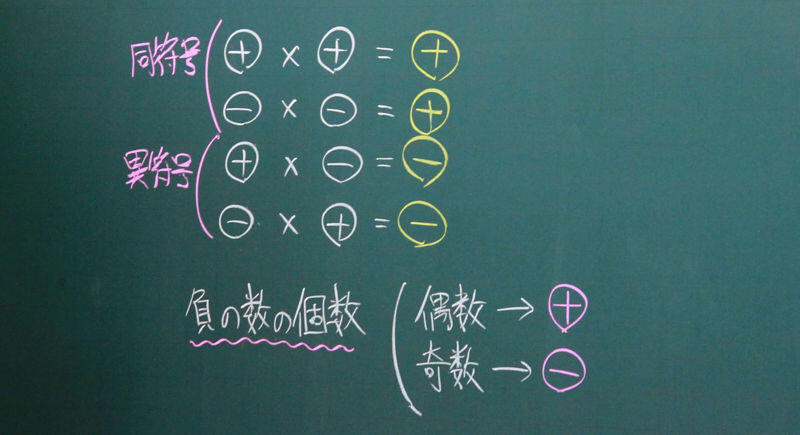 同符号 ⊕ × ⊕ = ⊕
⊖ × ⊖ = ⊕
異符号 ⊕ × ⊖ = ⊖
⊖ × ⊕ = ⊖
負の数の個数 偶数 → ⊕
奇数 → ⊖